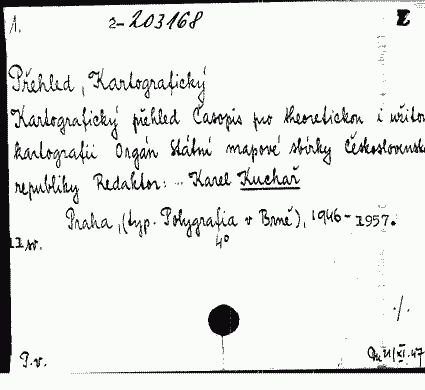 1. 2-203168 Z
Přehled, Kartografický
Kartografický přehled Časopis pro theoretickou i užitou
kartografii Orgán Státní mapové sbírky Československ
republiky Redaktor: ... Karel Kuchař
Praha, (typ. Polygrafia v Brně), 1946-1957.
11 sv. 4°
./.
P.v. 21/XI.47